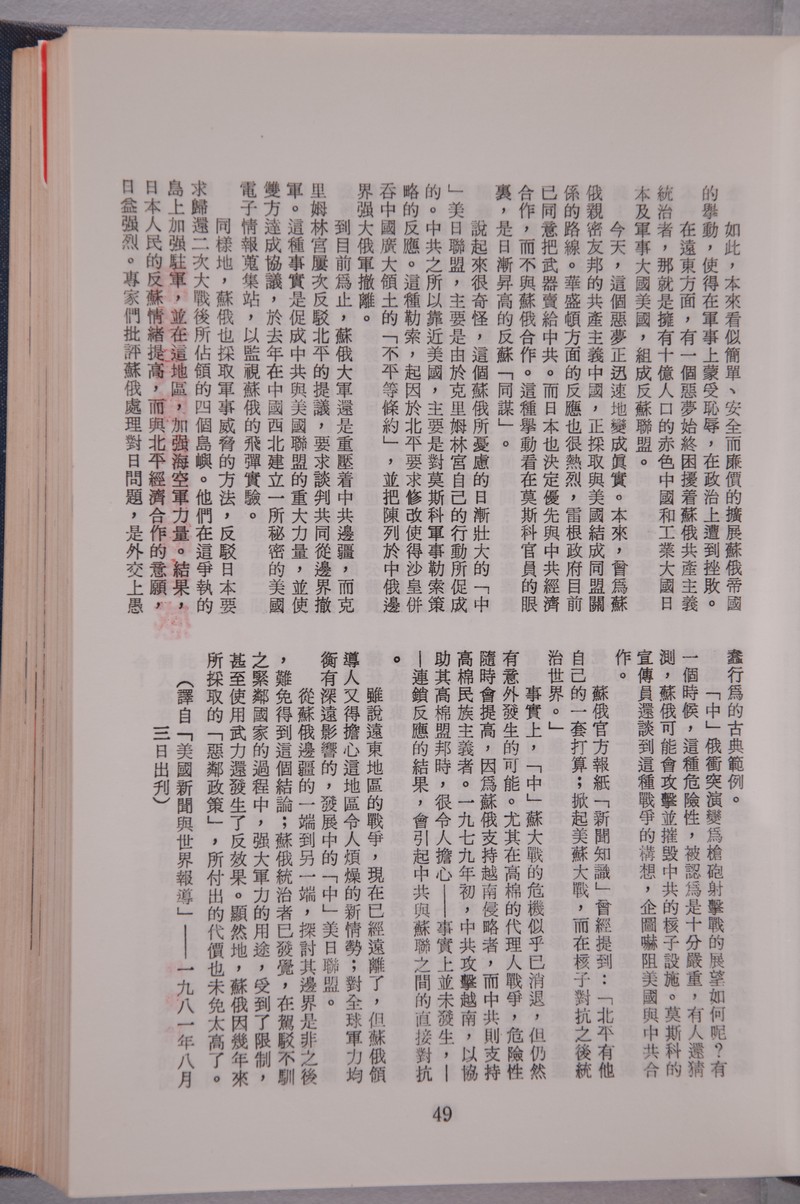 如此，本來看似簡單、安全而廉價的擴展蘇俄帝國
的舉動，使得在軍事上蒙受恥辱，在政治上遭到挫敗。
在遠東方面，有一個惡夢始終困擾着蘇俄共產主義
統治者，那就是擁有十億人口的赤色中國和工業大國日
本及軍事大國美國，組成反蘇聯盟。
今天，這個惡夢正迅速地變成眞實。本來，曾爲蘇
俄親密友邦的共產主義中國，正採取與美國結成同盟關
係的路線。華盛頓方面的反應也很熱烈，雷根政府目前
已同意把武器賣給中共。而日本也決定優先與中共經濟
合作，而不與蘇俄合作。這種舉動看在莫斯科官員的眼
裏，是日漸昇高的反蘇「同謀」。
說起來很奇怪，這個蘇俄所憂慮的日漸壯大的「中
」美日聯盟，主要是由於克里姆林宮自己的行動所促成
的。中共之所以靠近美國，主要是對莫斯科軍事勒索策
略的反應。這種勒索，起因於北平要求修改使得沙皇併
吞中國廣大領土的「不平等條約」，並把陳列於中俄邊
界强大俄軍撤離。
到目前爲止，蘇俄大軍還是重壓着中共邊疆，而克
里姆林宮屢次反駁北平的提議，要求談判共同從邊界撤
軍。這種事實是促成中共與美國聯盟的重大力量，並使
雙方達成協議，於去年在中國西北建立一所秘密的美國
電子情報蒐集站，以監視蘇俄的飛彈實驗。
同樣地，蘇俄也採取軍事威脅的方法，反駁日本要
求歸還二次大戰後所佔領的四個島嶼。他們在這爭執的
島上加强駐軍，並在這地區，加强海空軍力量。結果，
日本人民的反蘇情緒提高，而與北平經濟合作的意願，
日益强烈。專家們批評蘇俄處理對日問題，是外交上愚
蠢行爲的古典範例。
「中」俄衝突演變爲槍砲射擊戰的展望如何呢？有
一個時候，這種危險性，被認爲是十分嚴重，有人還猜
測，蘇俄可能會攻擊並摧毀中共的核子設施。莫斯科的
宣傳員還談到這種戰爭的構想，企圖嚇阻美國與中共合
作。
蘇俄官方報紙「新聞知識」曾經提到：「北平有他
自己的一套打算；掀起美蘇大戰，而在核子對抗之後統
治世界。」
事實上，「中」蘇大戰的危機似乎已消退，但仍然
有意外發生的可能。尤其在高棉的代理人戰爭，危險性
隨時會提高，因爲蘇俄支持越南侵略者，而中共則支持
高棉民族主義者。一九七九年初，中共攻擊越南，以協
助其高棉盟邦時，很令人擔心——事實上並未發生，—
—連鎖反應的結果，會引起中共與蘇聯之間的直接對抗
。
雖說遠東地區的戰爭，現在已經遠離了，但蘇俄領
導人又得擔心這地區令人煩燥的新情勢；對全球軍力均
衡有深遠影響的，發展中的「中」美日聯盟。
從蘇俄邊疆的一端到另一端，探討其邊界是非之後
，難免得到這個結論；蘇俄統治者已發覺，在駕馭不馴
之緊鄰國家的過程中，强大軍力的用途，受到了限制，
甚至使用武力還發生了反效果。顯然地，蘇俄因幾年來
所採取的「惡鄰政策」，所付出的代價也未免太高了。
（譯自「美國新聞與世界報導」——一九八一年八月
三日出刋）
49